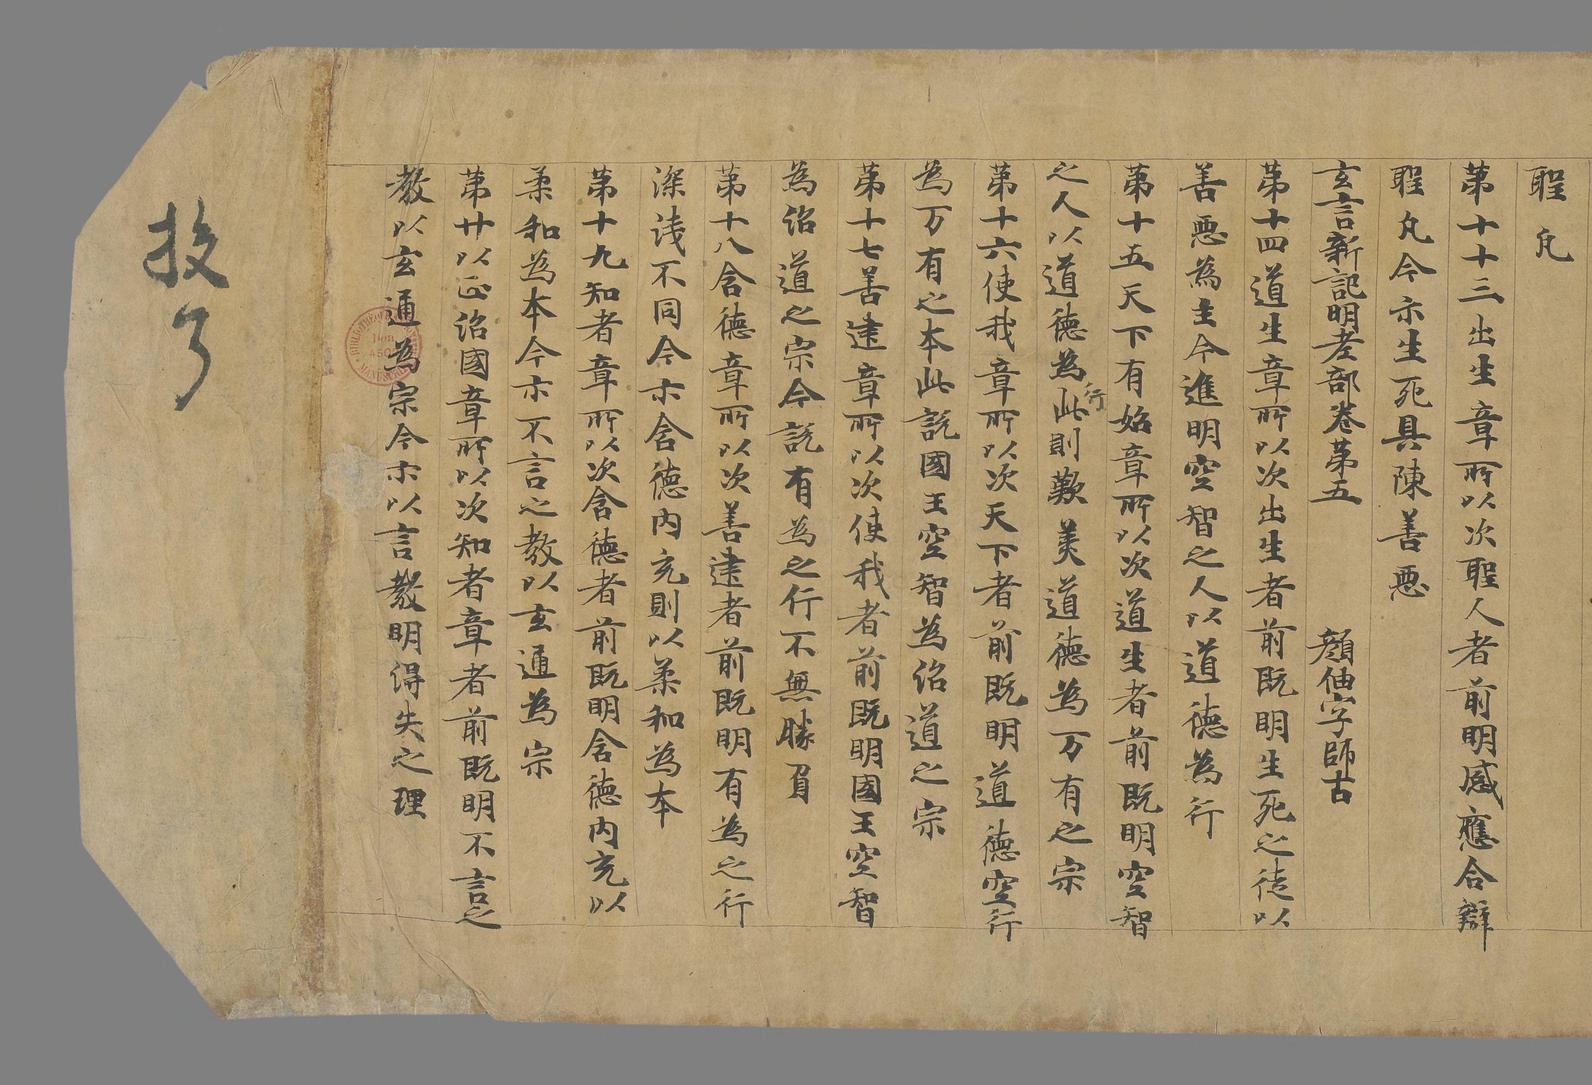 聖凡
第十十三出生章所以次聖人者前明感應合辯
聖凡今亦生死具陳善惡
玄言新記明老部卷第五 顏伷字師古
第十四道生章所以次出生者前既明生死之徒以
善惡為主今進明空智之人以道德為行
第十五天下有始章所以次道生者前既明空智
之人以道德為行此則歎美道德為万有之宗
第十六使我章所以次天下者前既明道德空行
為万有之本此説國王空智為治道之宗
第十七善建章所以次使我者前既明國王空智
為治道之宗今説有為之行不無勝負
第十八含德章所以次善建者前既明有為之行
深淺不同今亦含德內充則以柔和為本
第十九知者章所以次含德者前既明含德內充以
柔和為本今亦不言之教以玄通為宗
第廿以正治國章所以次知者章者前既明不言之
教以玄通為宗今亦以言教明得失之理
BIBLIOTHEQUE MANUSCRITS
Don 4502
投了